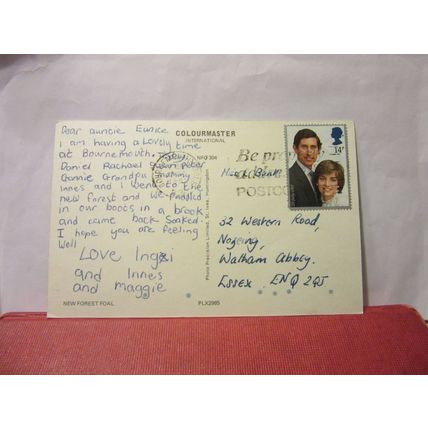 Dear auntie Eunice
I am having a lovely time
at Bournemouth.
Daniel Rachael Susan Peter
Grannie Grandpa mummy
Innes and I went to the
new forest and we paddled
in our boots in a brook
and came back soaked.
I hope you are feeling
well
Love
and Innes
and maggie
NEW FOREST FOAL
COLOURMASTER
INTERNATIONAL
Photo Precision Limited, St. Ives, Huntingdon
PLX2985
Be
POSTCO
14P
32 Western Road,
Nazeing,
Waltham Abbey.
Essex. EN9 2QJ